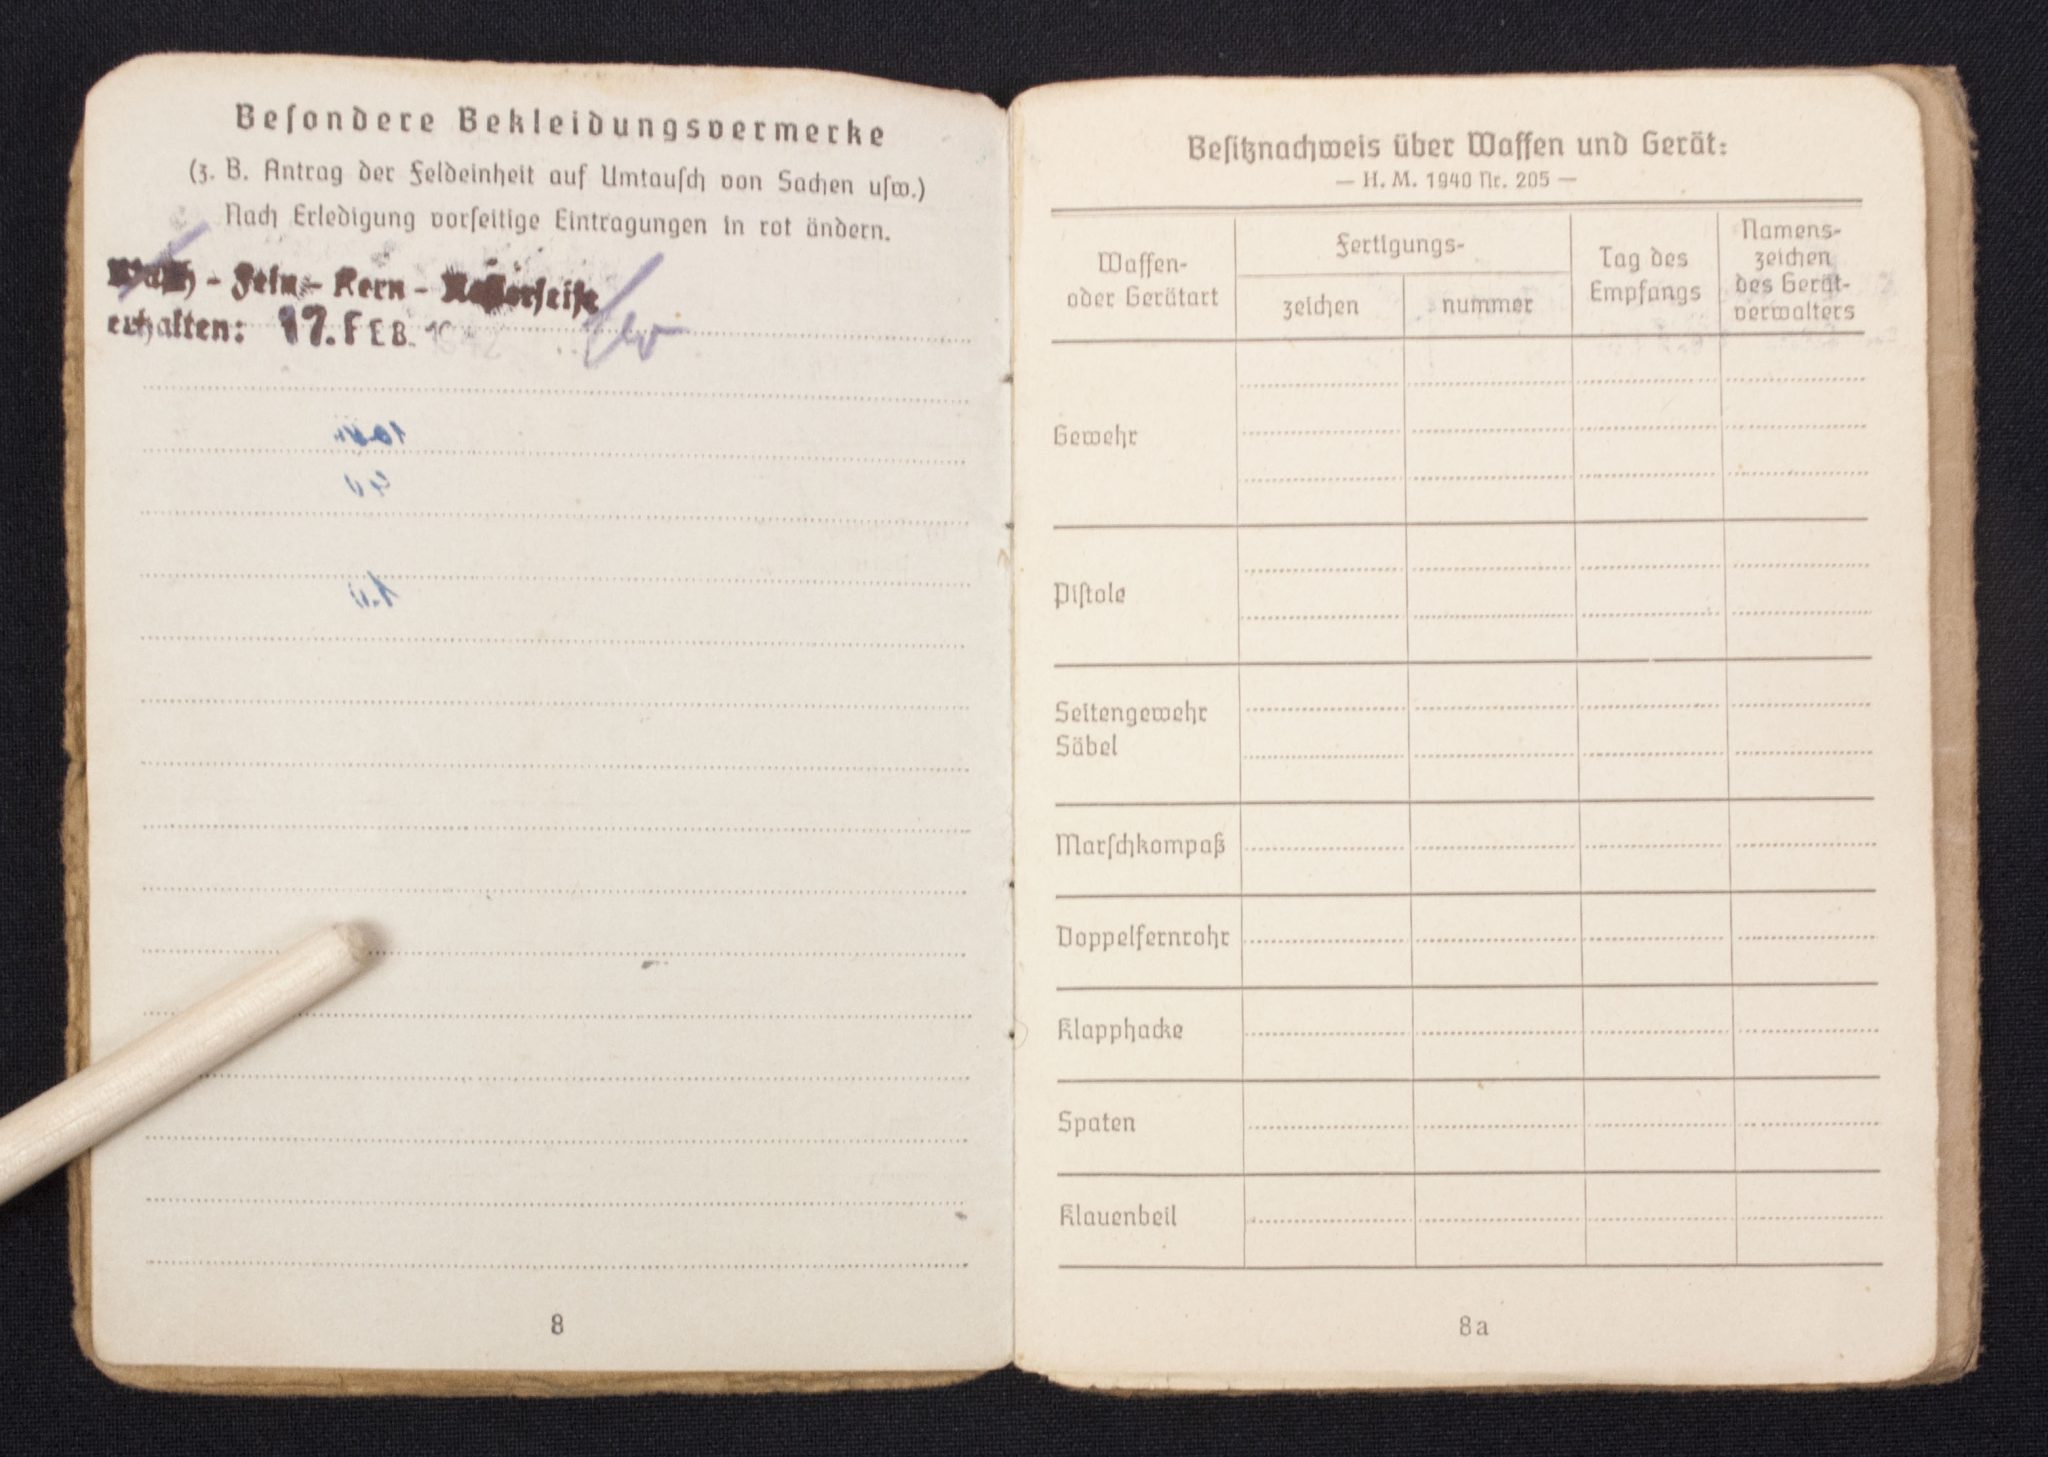 Besondere Bekleidungsvermerke
(z. B. Antrag der Feldeinheit auf Umtausch von Sachen usw.)
Nach Erledigung vorseitige Eintragungen in rot ändern.
Wasch - Fein - Kern - Rasierseife
erhalten: 17. FEB. 194
8
Besitznachweis über Waffen und Gerät:
— H. M. 1940 Nr. 205 —
Waffen-
oder Gerätart
Fertigungs-
zeichen
nummer
Tag des
Empfangs
Namens-
zeichen
des Gerät-
verwalters
Gewehr
Pistole
Seitengewehr
Säbel
Marschkompaß
Doppelfernrohr
Klapphacke
Spaten
Klauenbeil
8a